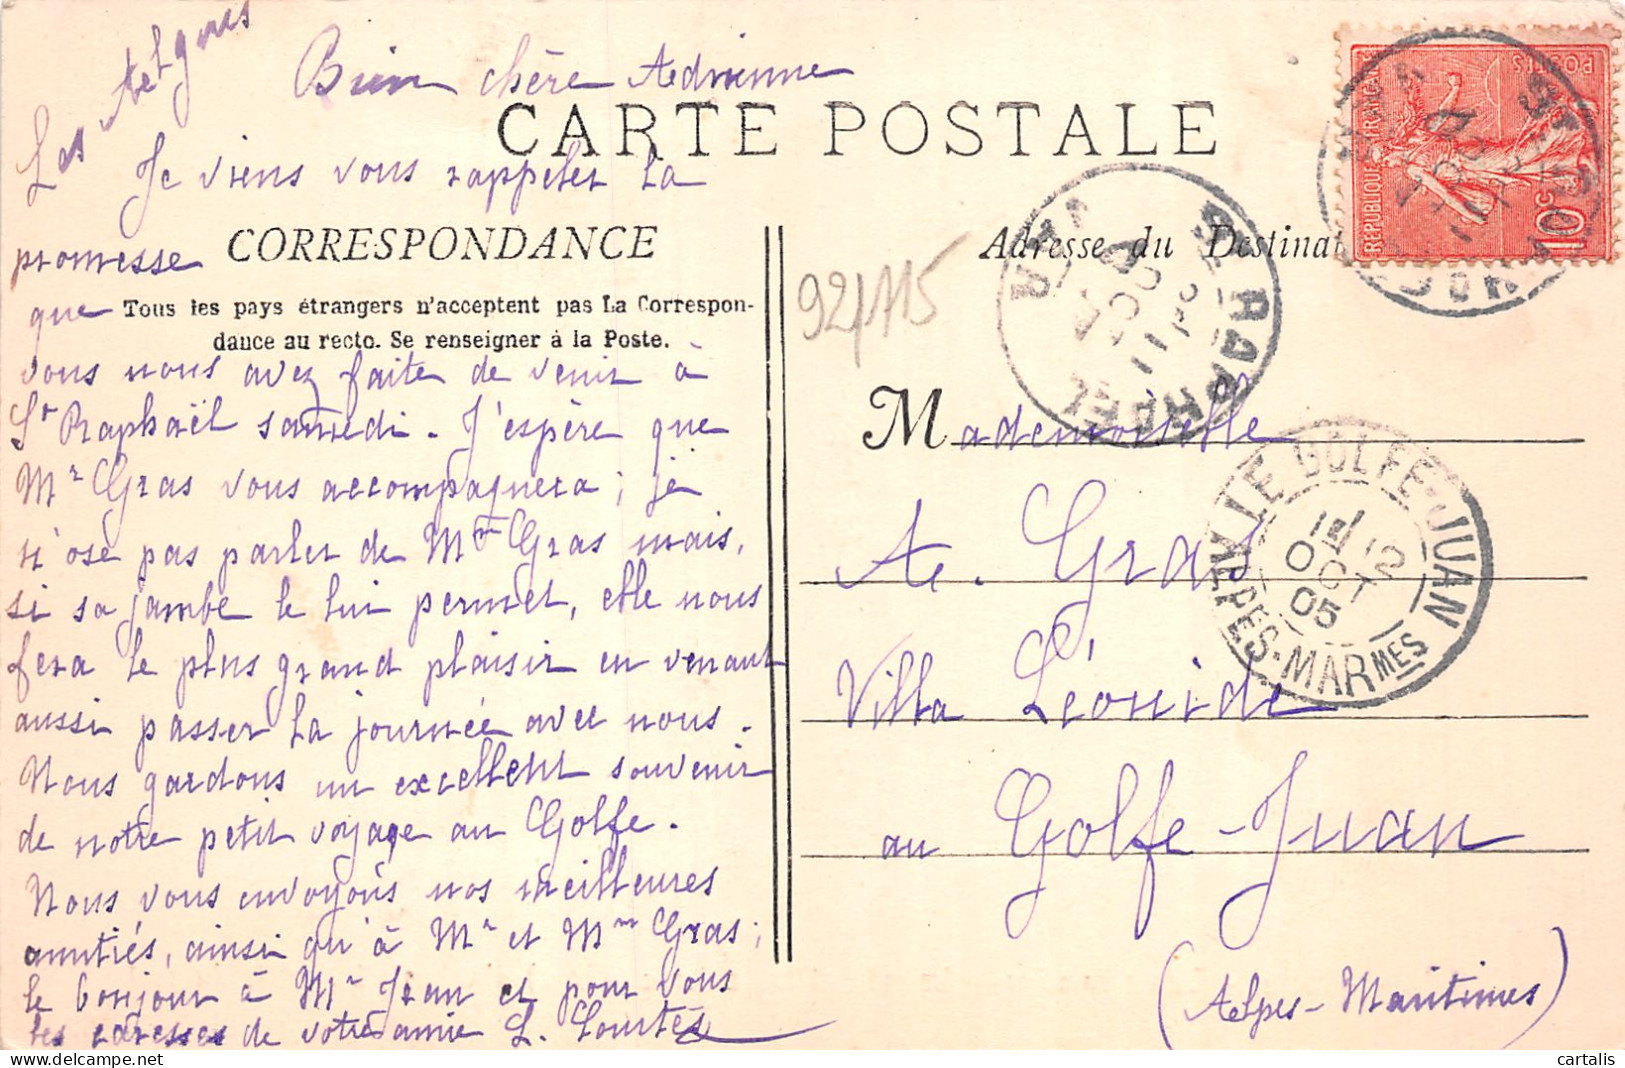 Les Algues
Bien chère Adrienne
CARTE POSTALE
Je viens vous rappeler la
promesse CORRESPONDANCE
que Tous les pays étrangers n'acceptent pas La Correspon-
dance au recto. Se renseigner à la Poste.
vous nous avez faite de venir à
St Raphaël samedi. J'espère que
Mr Gras vous accompagnera ; je
n'ose pas parler de Mme Gras mais,
si sa jambe le lui permet, elle nous
fera le plus grand plaisir en venant
aussi passer la journée avec nous.
Nous gardons un excellent souvenir
de notre petit voyage au Golfe.
Nous vous envoyons nos meilleures
amitiés, ainsi qu'à Mr et Mme Gras ;
le bonjour à Mr Jean et pour vous
les de votre amie L.
Adresse du Destinat
92/115
Mademoiselle
A. Gras
Villa Léonide
au Golfe-Juan
(Alpes-Maritimes)
POSTES
REPUBLIQUE FRANCAISE
10 c
ST RAPHAEL
VAR
11
OCT
LE GOLFE-JUAN
12
OCT
05
ALPES-MARMES
cartalis